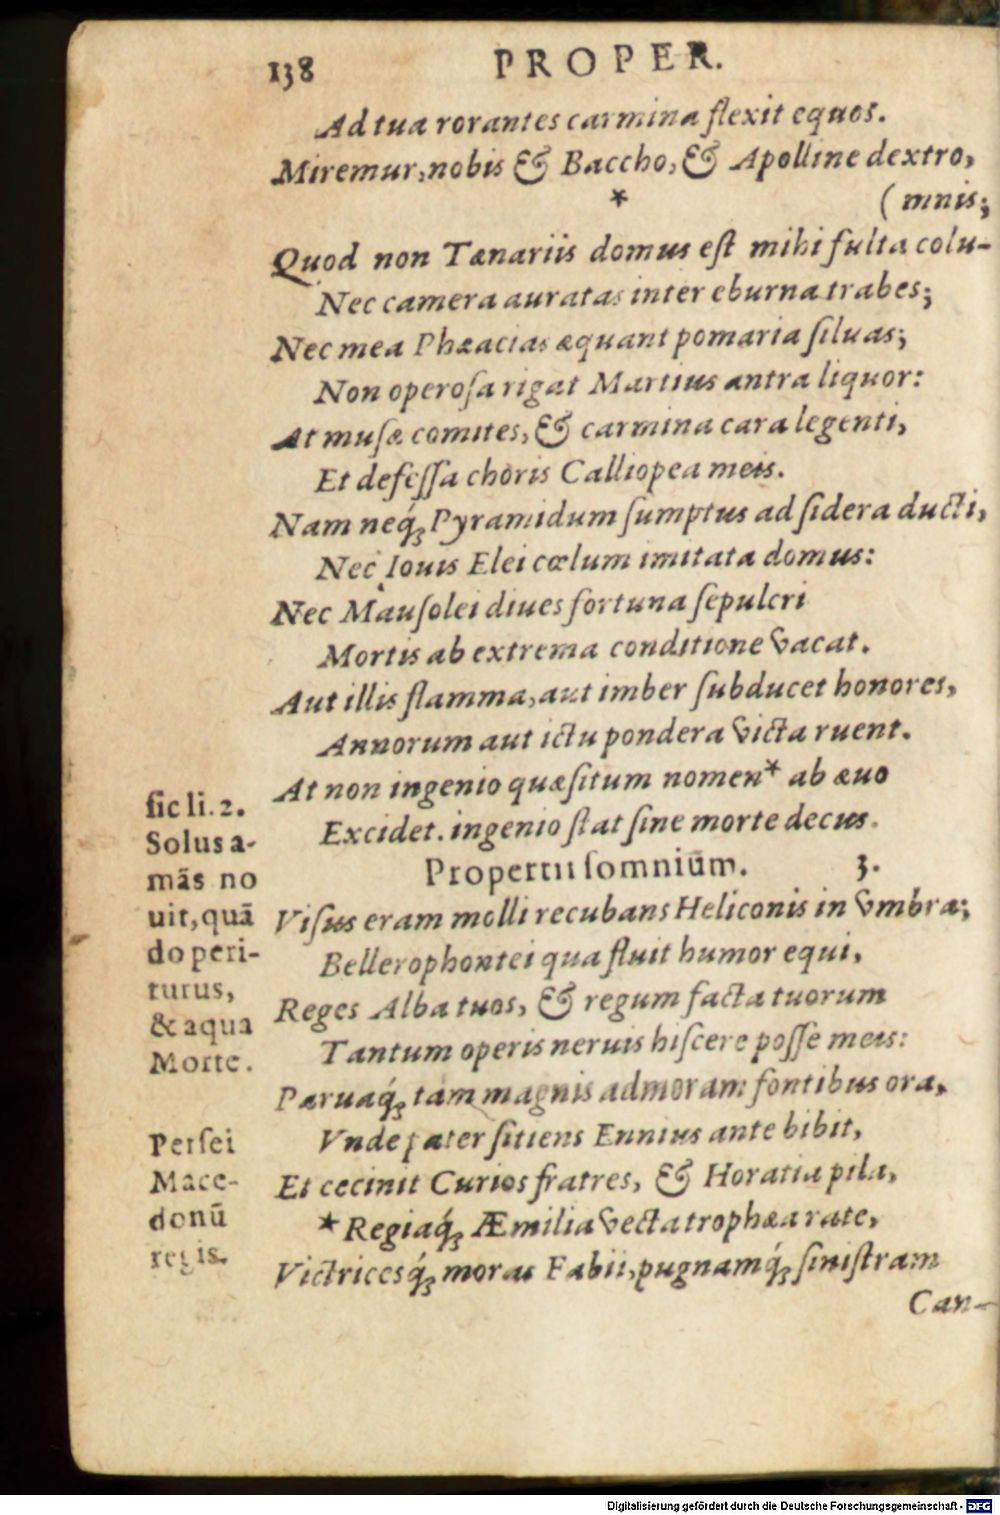 138 PROPER.
Ad tua rorantes carmina flexit equos.
Miremur, nobis & Baccho, & Apolline dextro,
* (mnis;
Quod non Tænariis domus eſt mihi fulta colu-
Nec camera auratas inter eburna trabes;
Nec mea Phæacias æquant pomaria ſiluas;
Non operoſa rigat Martius antra liquor:
At muſæ comites, & carmina cara legenti,
Et defeſſa choris Calliopea meis.
Nam neq́; Pyramidum ſumptus ad ſidera ducti,
Nec Iouis Elei cœlum imitata domus:
Nec Mauſolei diues fortuna ſepulcri
Mortis ab extrema conditione vacat.
Aut illis flamma, aut imber ſubducet honores,
Annorum aut ictu pondera victa ruent.
At non ingenio quæſitum nomen* ab æuo
Excidet. ingenio ſtat ſine morte decus.
Propertii ſomniūm. 3.
Viſus eram molli recubans Heliconis in vmbra;
Bellerophontei qua fluit humor equi,
Reges Alba tuos, & regum facta tuorum
Tantum operis neruis hiſcere poſſe meis:
Paruaq́; tam magnis admoram fontibus ora,
Vnde pater ſitiens Ennius ante bibit,
Et cecinit Curios fratres, & Horatia pila,
*Regiaq́; Æmilia vecta trophæa rate,
Victricesq́; moras Fabii, pugnamq́; ſiniſtram
Can-
ſic li. 2.
Solus a-
mãs no
uit, quã
do peri-
turus,
& aqua
Morte.
Perſei
Mace-
donũ
regis.
Digitalisierung gefördert durch die Deutsche Forschungsgemeinschaft - DFG